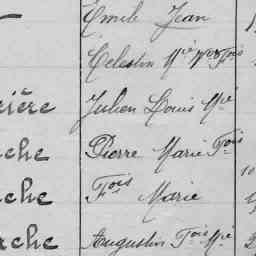 Emile Jean
Celestin Mie Fois
ière Julien Louis Mie
che Pierre Marie Fois
che Fois Marie
che Augustin Fois Mie